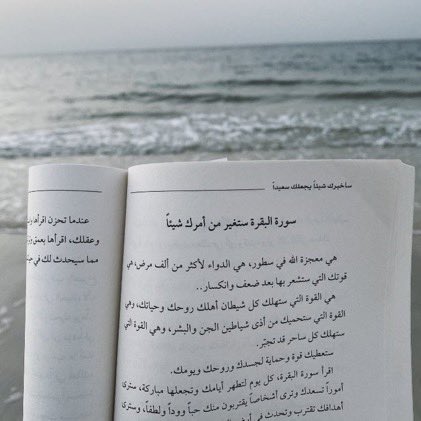 سأخبرك شيئاً يجعلك سعيداً
سورة البقرة ستغير من أمرك شيئاً
هي معجزة الله في سطور، هي الدواء لأكثر من ألف مرض، هي
قوتك التي ستشعر بها بعد ضعف وانكسار..
هي القوة التي ستهلك كل شيطان أهلك روحك وحياتك، وهي
القوة التي ستحميك من أذى شياطين الجن والبشر، وهي القوة التي
ستهلك كل ساحر قد تجبّر.
ستعطيك قوة وحماية لجسدك وروحك ويومك.
اقرأ سورة البقرة، كل يوم لتطهر أيامك وتجعلها مباركة، سترى
أموراً تسعدك وترى أشخاصاً يقتربون منك حباً ووداً ولطفاً، وسترى
أهدافك تقترب وتحدث في
عندما تحزن اقرأها
وعقلك، اقرأها بعمق
مما سيحدث لك في